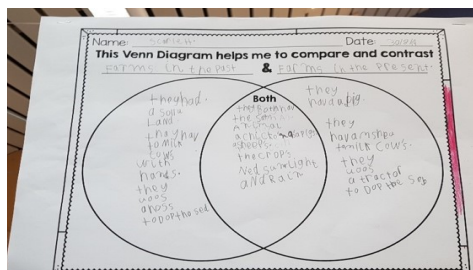 Name:
Date:
This Venn Diagram helps me to compare and contrast
farms in the past & farms in the present.
they had.
a
land.
they hav
to milk
cows
with
hands.
they
uoos
a hoss
to dop the sed
Both
they Both hav
the sam
animal
the crops
Ned sunlight
and Rain
they
hav a big.
they
hav a
to milk cows.
they
uoos
a tractor
to dop the sed